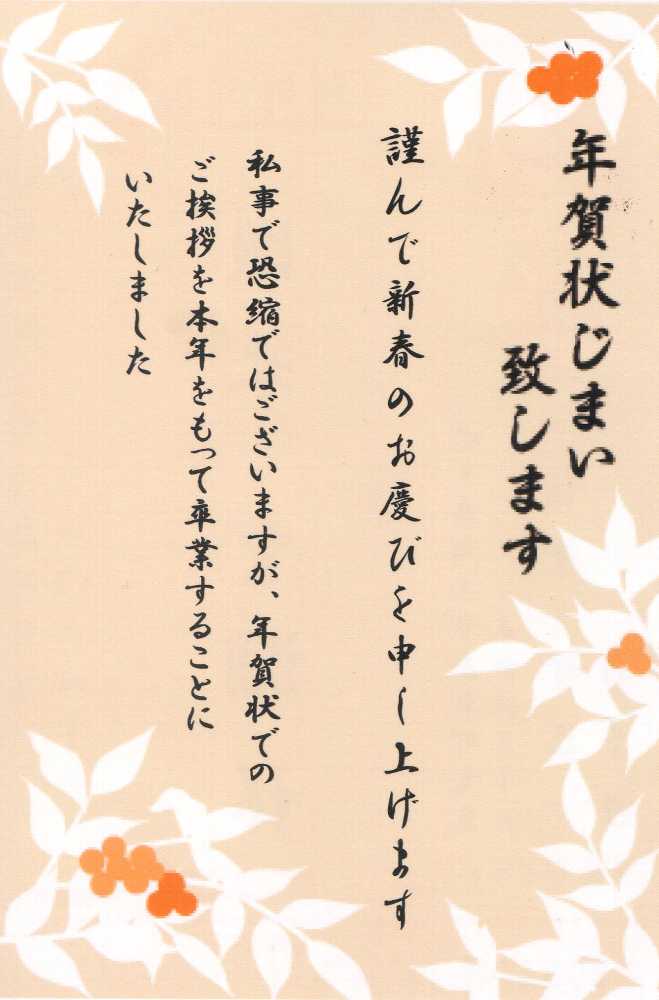 年賀状じまい
致します
謹んで新春のお慶びを申し上げます
私事で恐縮ではございますが、年賀状での
ご挨拶を本年をもって卒業することに
いたしました